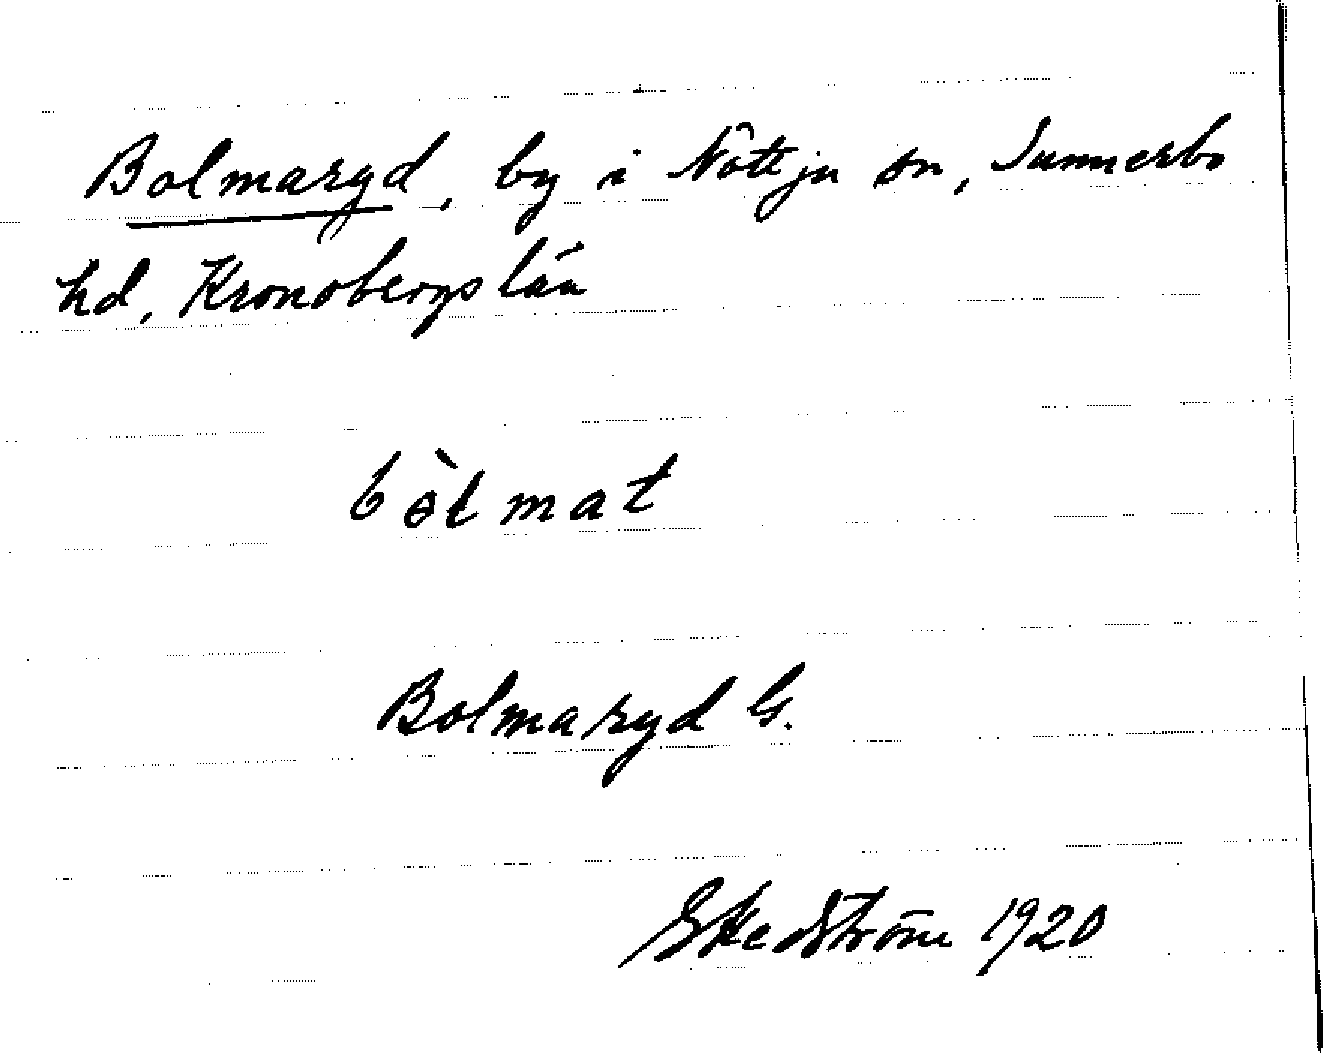 Bolmaryd, by i Nöttja sn, Sunnerbo
hd, Kronobergs län
bòlmat
Bolmaryd G.
G Hedström 1920